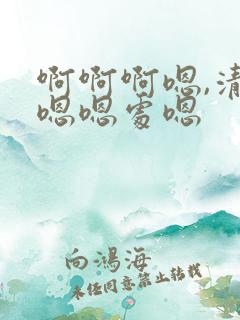 啊啊啊嗯,清
嗯嗯处嗯
向鸿海
未经同意禁止转载